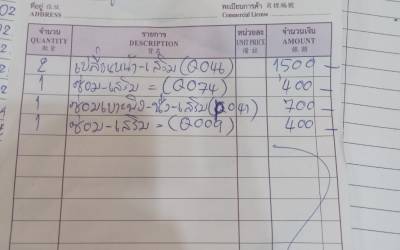 ที่อยู่ 住址
ADDRESS
ทะเบียนการค้า
Commercial License
จำนวน รายการ หน่วยละ จำนวนเงิน
QUANTITY DESCRIPTION UNIT PRICE AMOUNT
2 เปลี่ยนหน้า-เสริม (Q046) 1500 -
1 ซ่อม-เสริม = (Q074) 400 -
1 ซ่อมเบาะพิง-นั่ง-เสริม (Q041) 700 -
1 ซ่อม-เสริม = (Q009) 400 -